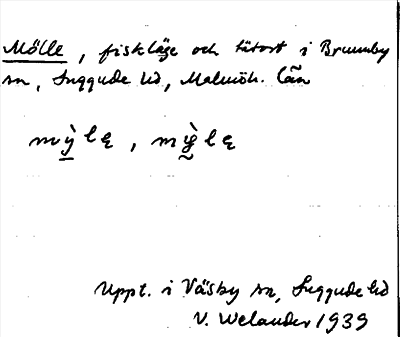 Mölle, fiskläge och tätort i Brunnby
sn, Luggude hd, Malmöh. län
Uppt. i Väsby sn, Luggude hd
V. Welander 1939